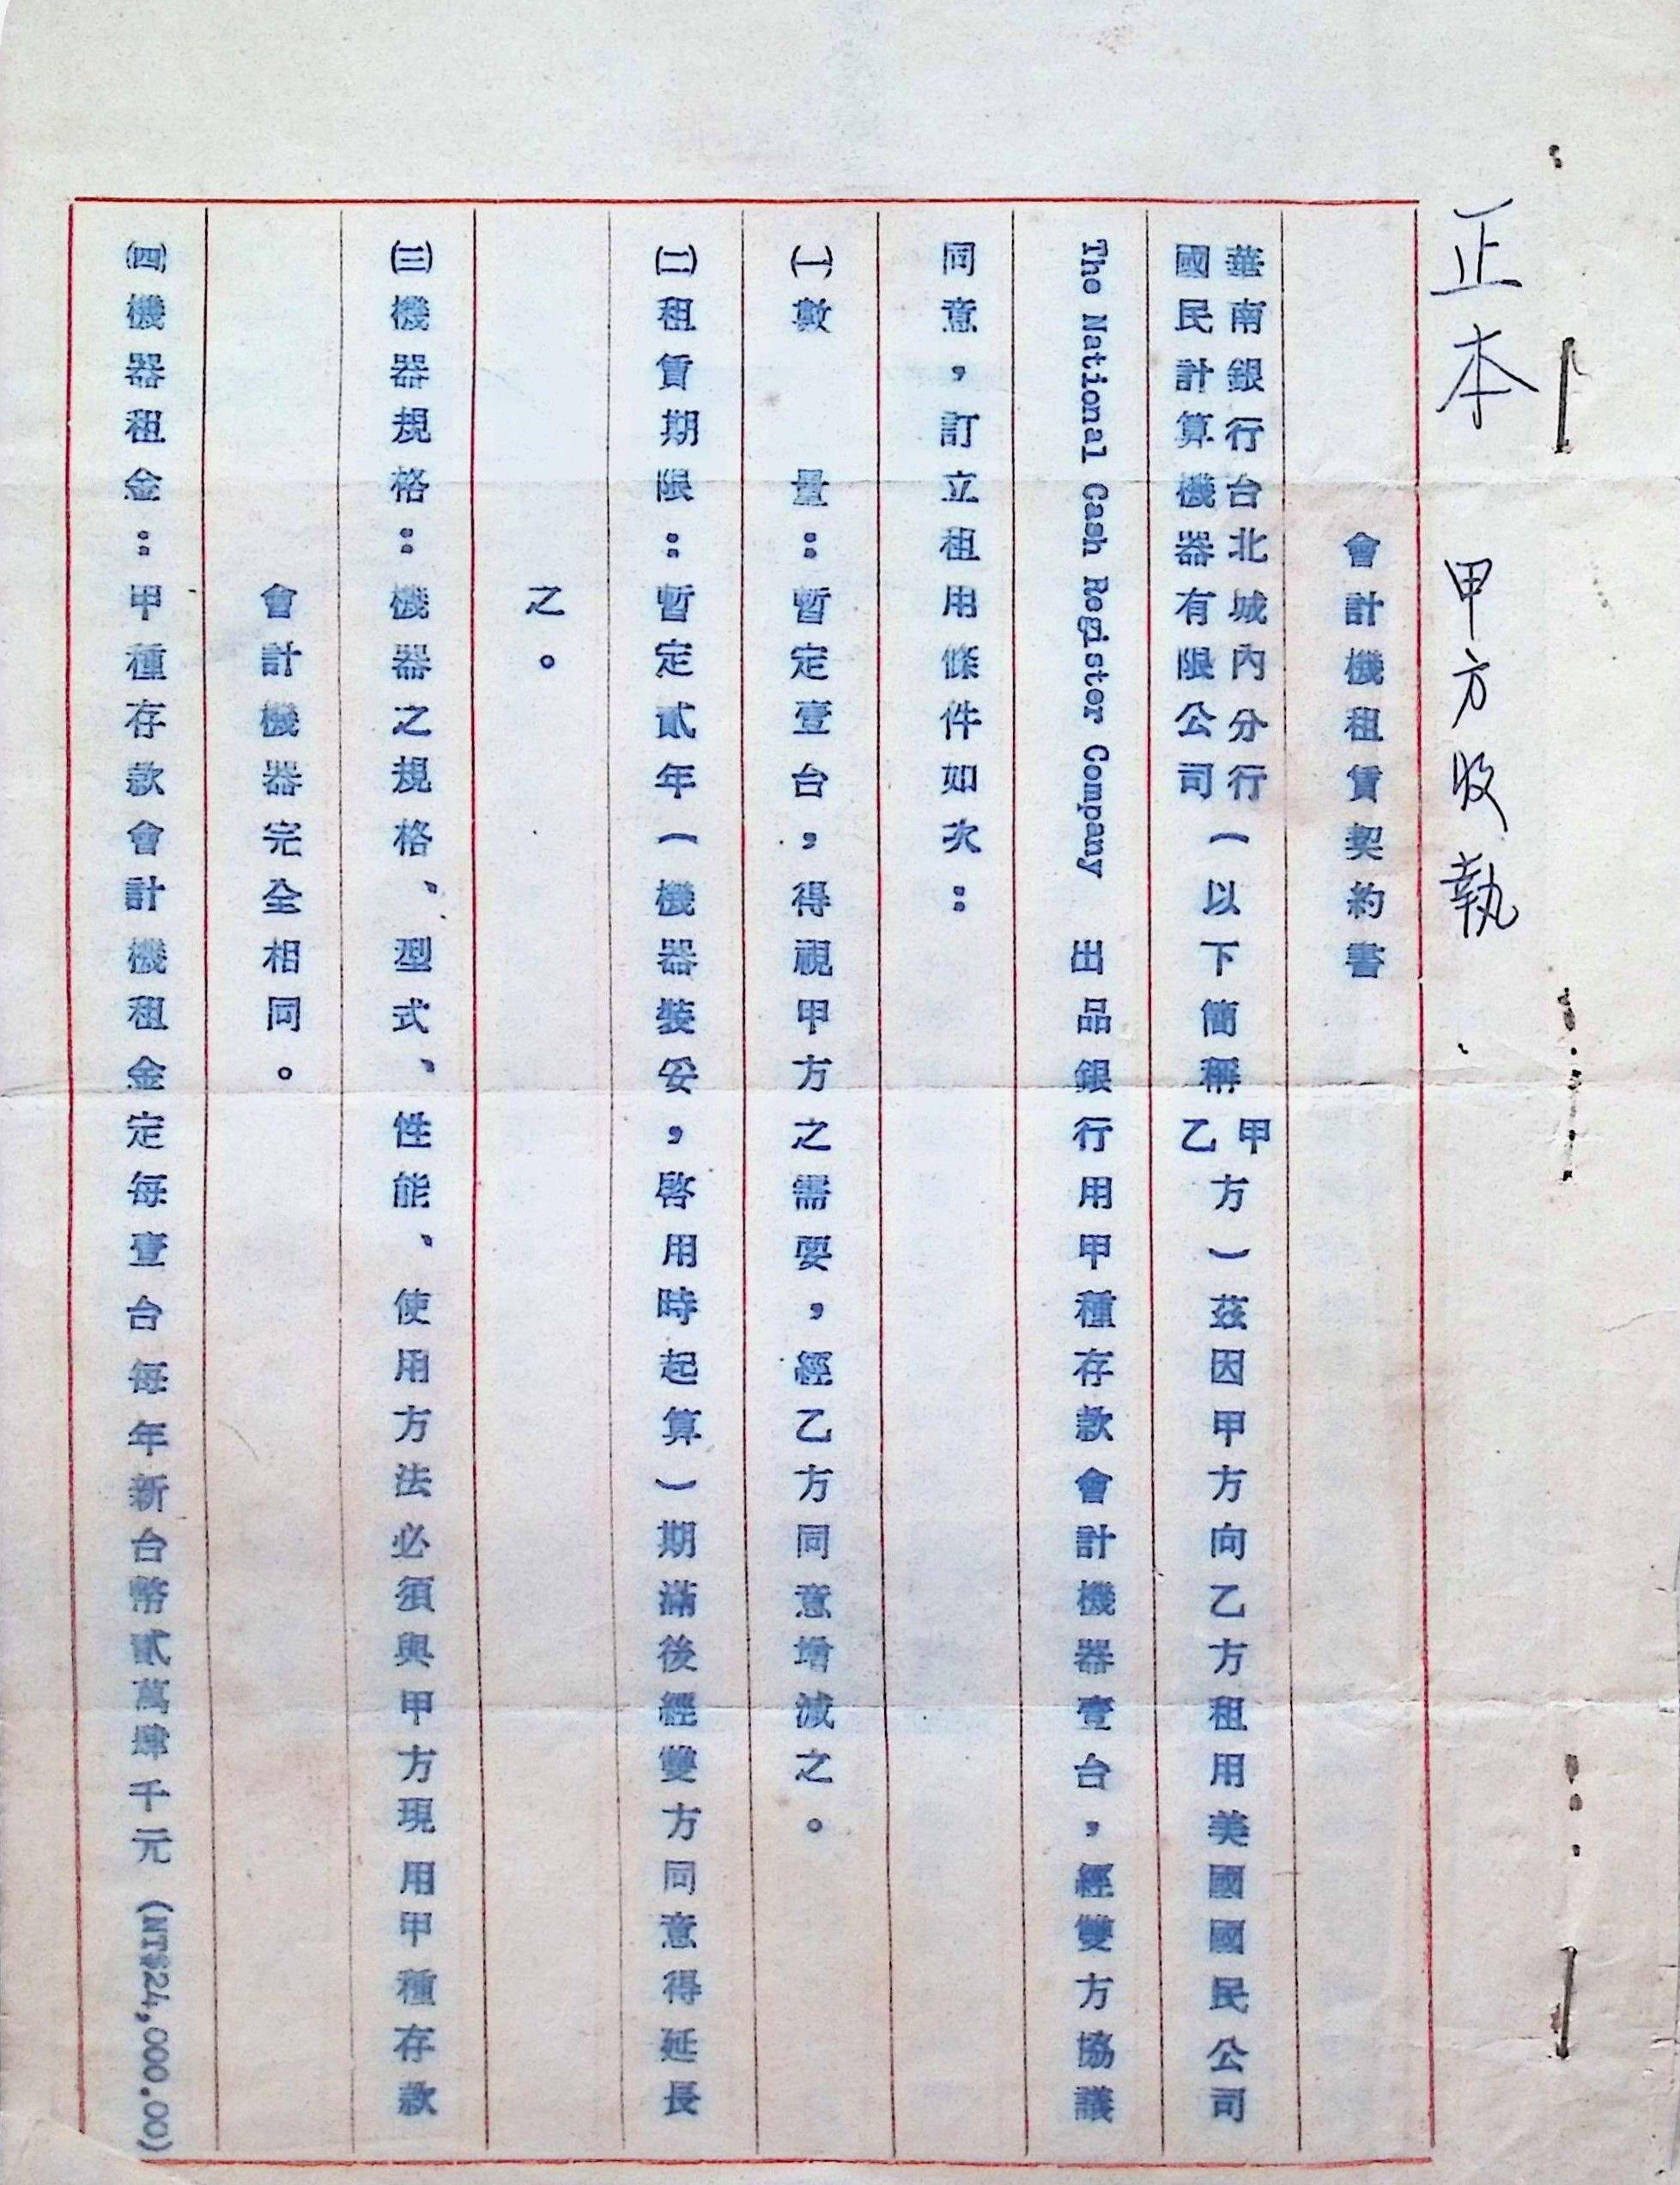 正本 甲方收執
會計機租賃契約書
華南銀行台北城內分行
國民計算機器有限公司
(以下簡稱
甲
乙
方)茲因甲方向乙方租用美國國民公司
The National Cash Register Company 出品銀行用甲種存款會計機器壹台,經雙方協議
同意,訂立租用條件如次:
㈠數 量:暫定壹台,得視甲方之需要,經乙方同意增減之。
㈡租賃期限:暫定貳年(機器裝妥,啓用時起算)期滿後經雙方同意得延長
之。
㈢機器規格:機器之規格、型式、性能、使用方法必須與甲方現用甲種存款
會計機器完全相同。
㈣機器租金:甲種存款會計機租金定每壹台每年新台幣貳萬肆千元(NT$24,000.00)